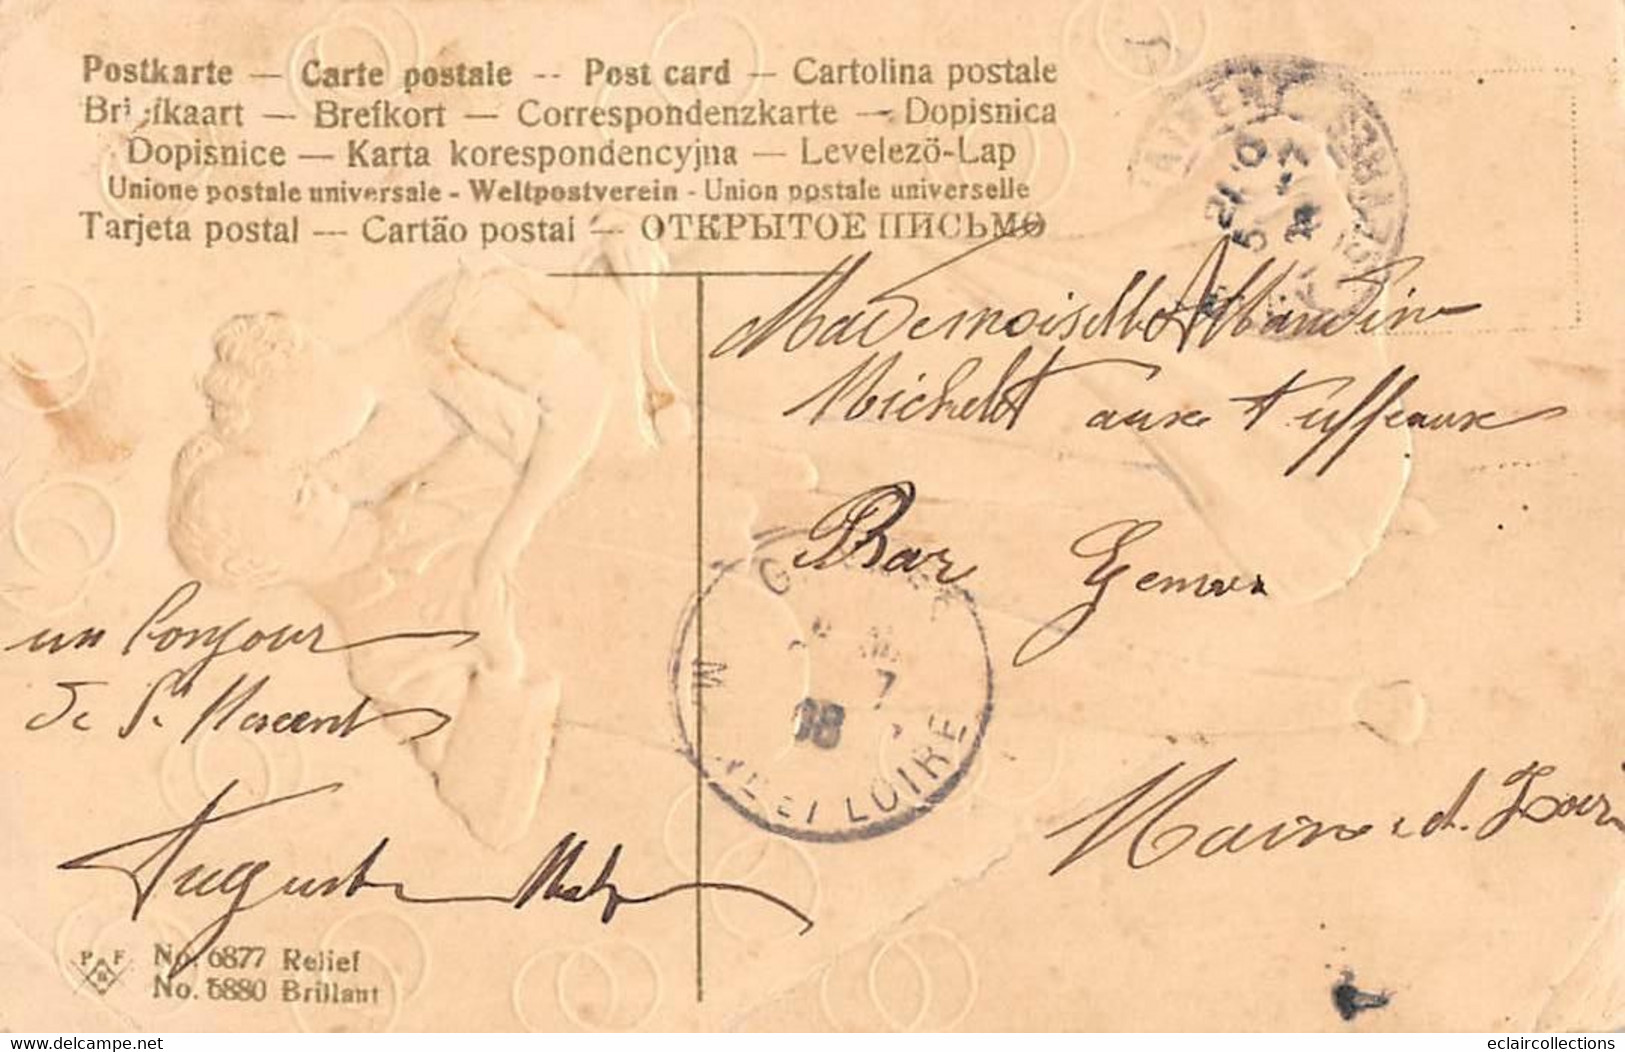 Postkarte — Carte postale -- Post card — Cartolina postale
Briefkaart — Brefkort — Correspondenzkarte — Dopisnica
Dopisnice — Karta korespondencyjna — Levelezö-Lap
Unione postale universale - Weltpostverein - Union postale universelle
Tarjeta postal — Cartão postal — ОТКРЫТОЕ ПИСЬМО
Mademoiselle
Michelet aux tuffeaux
Par Gennes
Maine et Loir
un bonjour
de St
Auguste
ET LOIRE
7
08
P F
No. 6877 Relief
No. 6880 Brillant
www.delcampe.net
eclaircollections